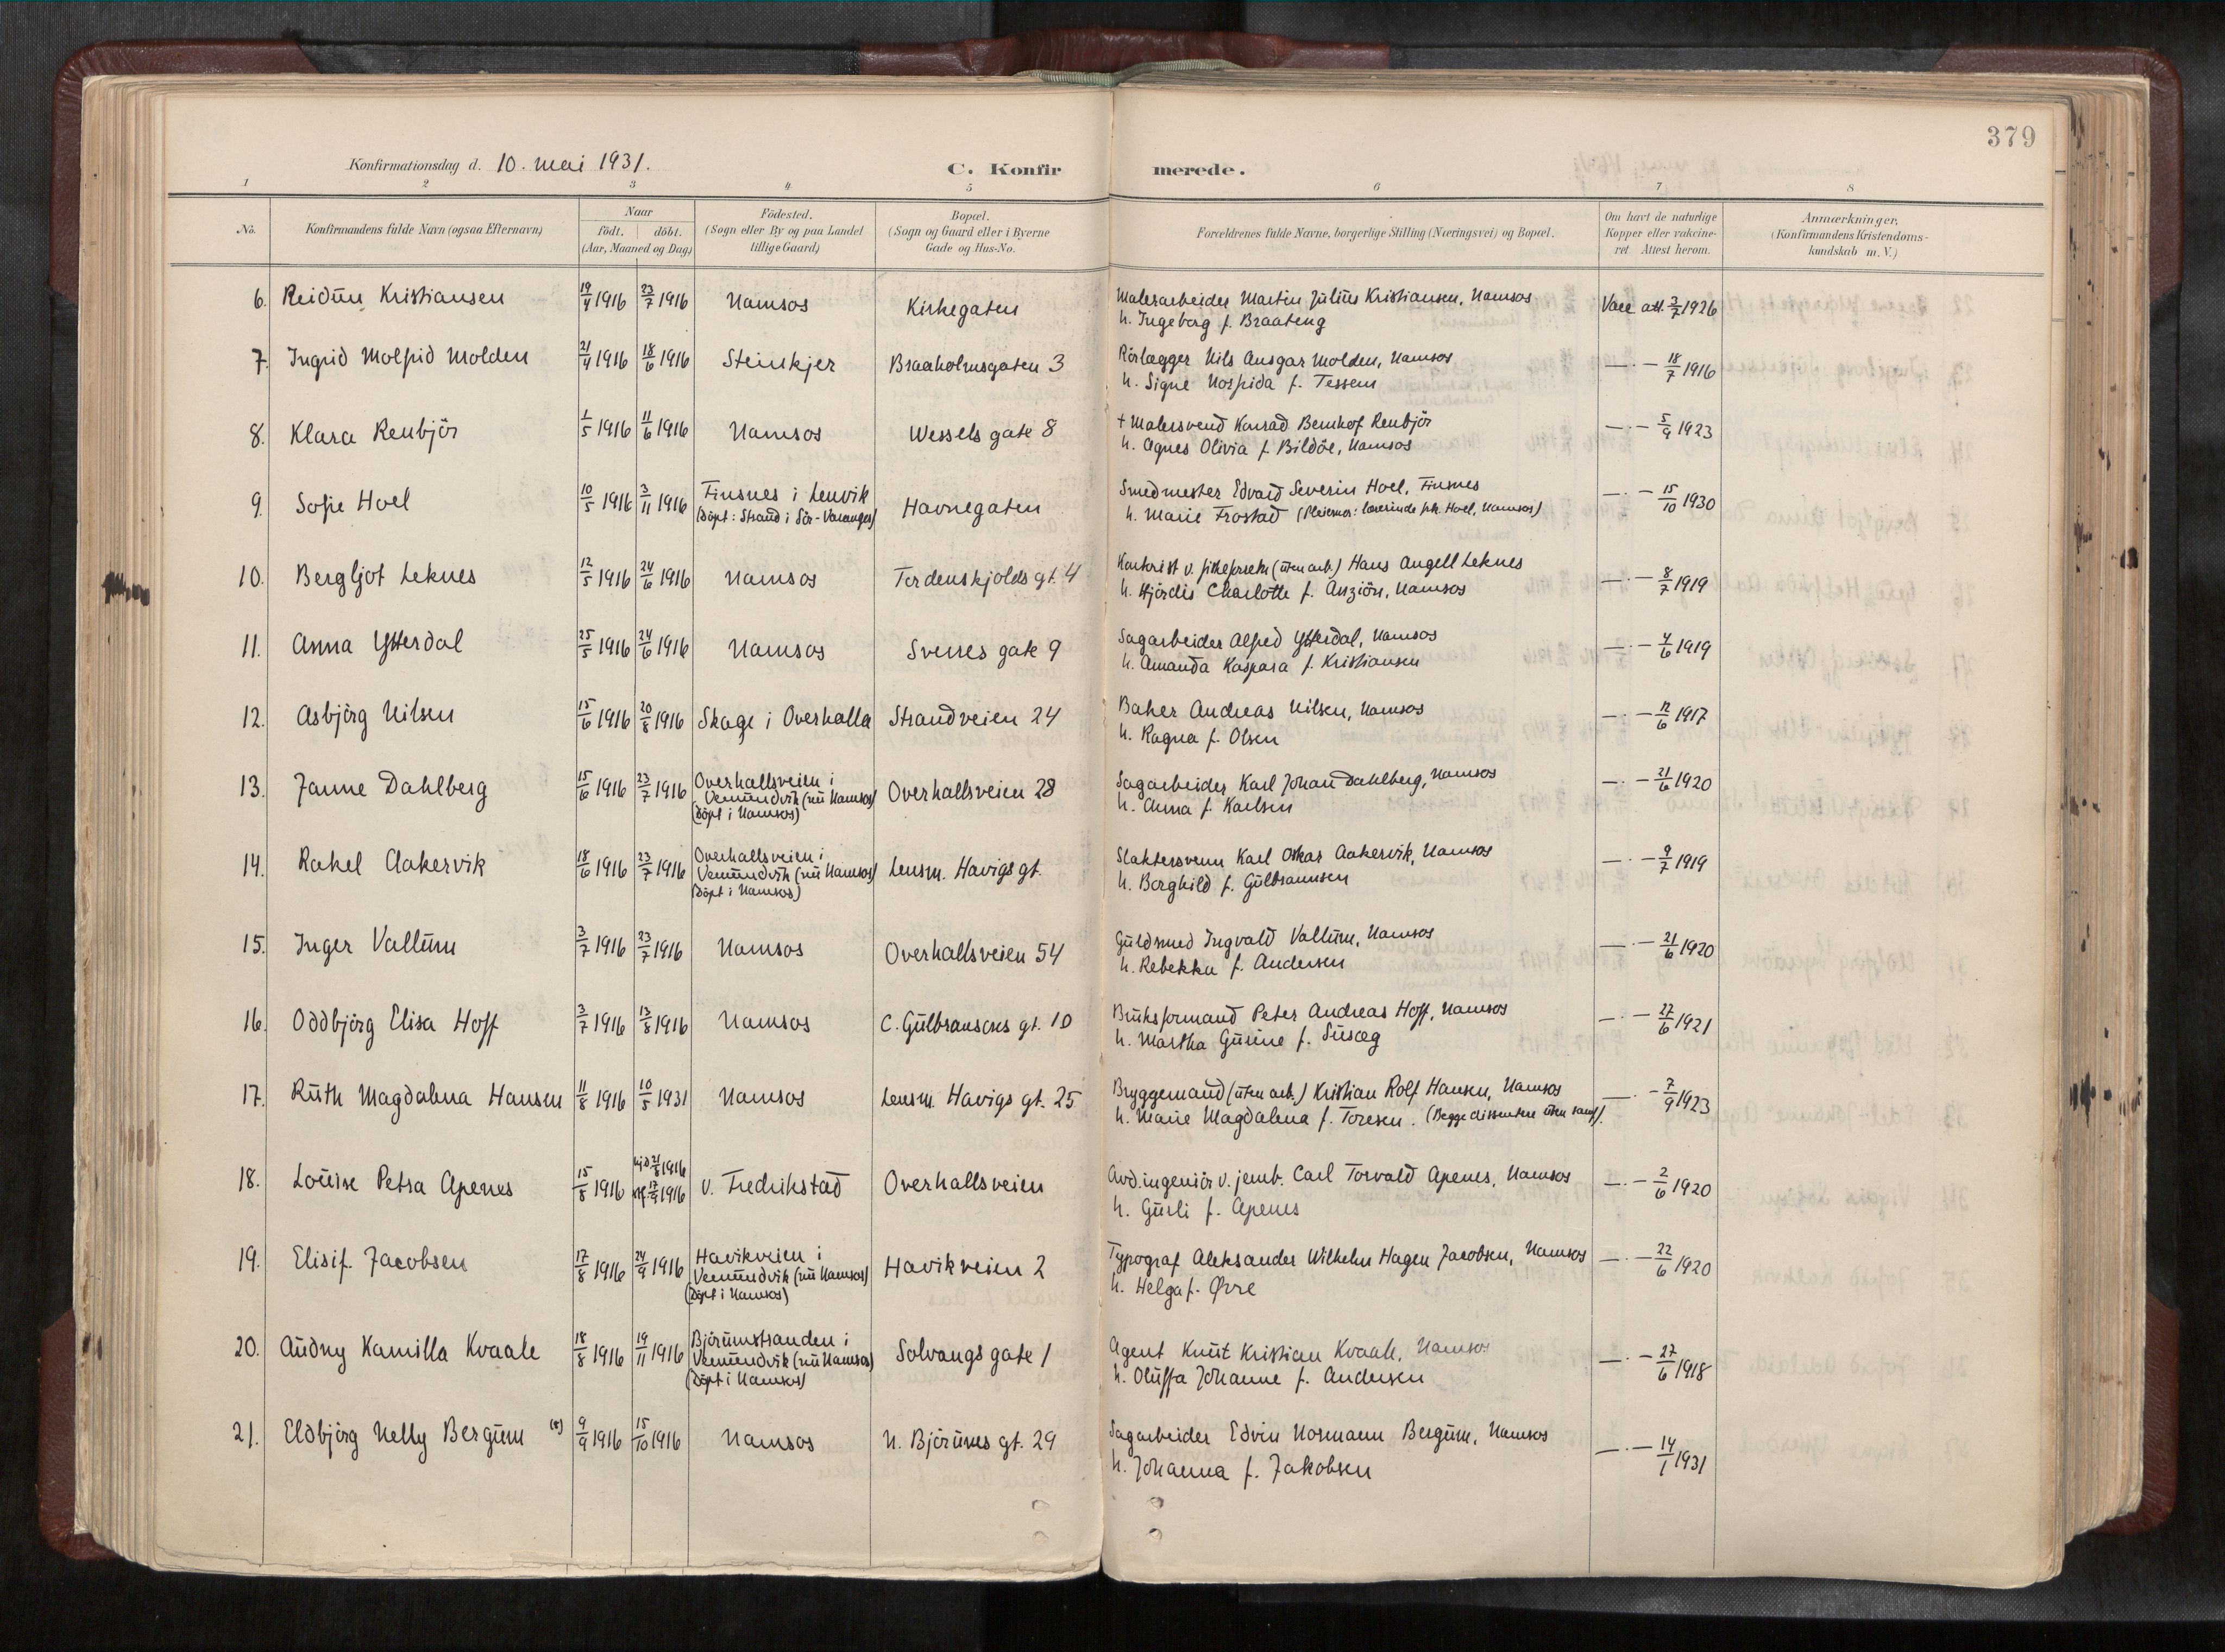 379
Konfirmationsdag d. 10. mai 1931.
C. Konfirmerede.
1 2 3 4 5 6 7 8
No.
Konfirmandens fulde Navn (ogsaa Efternavn)
Naar
födt. döbt.
(Aar, Maaned og Dag)
Födested.
(Sogn eller By og paa Landet
tillige Gaard)
Bopæl.
(Sogn og Gaard eller i Byerne
Gade og Hus-No.
Forældrenes fulde Navne, borgerlige Stilling (Næringsvei) og Bopæl.
Om havt de naturlige
Kopper eller vakcine-
ret. Attest herom.
Anmærkninger,
(Konfirmandens Kristendoms-
kundskab m. V.)
6. Reidun Kristiansen 19/4 1916 23/7 1916 Namsos Kirkegaten Malerarbeider Martin Julius Kristiansen, Namsos Vacc att. 3/7 1926
h. Ingeborg f. Braateng
7. Ingrid Molfrid Molden 21/4 1916 18/6 1916 Steinkjer Braaholmsgaten 3 Rörlægger Nils Ansgar Molden, Namsos — · — 18/7 1916
h. Signe Nosfrida f. Tessem
8. Klara Renbjör 1/5 1916 11/6 1916 Namsos Wessels gate 8 + Malersvend Konrad Bernhof Renbjör — · — 5/9 1923
h. Agnes Olivia f. Bildöe, Namsos
9. Sofie Hoel 10/5 1916 3/11 1916 Finsnes i Lenvik Havnegaten Smedmester Edvard Severin Hoel, Finsnes — · — 15/10 1930
(döpt: Strand i Sör-Varanger) h. Marie Frostad (Pleiemor: lærerinde frk. Hoel, Namsos)
10. Bergljot Leknes 12/5 1916 24/6 1916 Namsos Tordenskjolds gt. 4 Kontorist v. (uten arb.) Hans Angell Leknes — · — 8/7 1919
h. Hjördis Charlotte f. Anziön, Namsos
11. Anna Ytterdal 25/5 1916 24/6 1916 Namsos Sverres gate 9 Sagarbeider Alfred Ytterdal, Namsos — · — 4/6 1919
h. Amanda Kaspara f. Kristiansen
12. Asbjörg Nilsen 15/6 1916 20/8 1916 Skage i Overhalla Strandveien 24 Baker Andreas Nilsen, Namsos — · — 12/6 1917
h. Ragna f. Olsen
13. Janne Dahlberg 15/6 1916 23/7 1916 Overhallsveien i Overhallsveien 28 Sagarbeider Karl Johan Dahlberg, Namsos — · — 21/6 1920
Vemundvik (nu Namsos) h. Anna f. Karlsen
(Döpt i Namsos)
14. Rakel Aakervik 18/6 1916 23/7 1916 Overhallsveien i Lensm. Havigs gt. Slaktersvenn Karl Oskar Aakervik, Namsos — · — 9/7 1919
Vemundvik (nu Namsos) h. Borghild f. Gulbrannsen
(Döpt i Namsos)
15. Inger Vallum 3/7 1916 23/7 1916 Namsos Overhallsveien 54 Guldsmed Ingvald Vallum, Namsos — · — 21/6 1920
h. Rebekka f. Andersen
16. Oddbjörg Elisa Hoff 3/7 1916 13/8 1916 Namsos C. Gulbransens gt. 10 Bruksformand Peter Andreas Hoff, Namsos — · — 27/6 1921
h. Martha Gurine f. Susæg
17. Ruth Magdalena Hansen 11/8 1916 10/5 1931 Namsos Lensm. Havigs gt. 25 Bryggemand (uten arb.) Kristian Rolf Hansen, Namsos — · — 7/9 1923
h. Marie Magdalena f. Toresen. (Begge dissentere uten samf).
18. Louise Petra Apenes 15/8 1916 hjd 21/8 1916 v. Fredrikstad Overhallsveien Avd.ingeniör v. jernb. Carl Torvald Apenes, Namsos — · — 2/6 1920
17/9 1916 h. Gurli f. Apenes
19. Elisif Jacobsen 17/8 1916 24/9 1916 Havikveien i Havikveien 2 Typograf Aleksander Wilhelm Hagen Jacobsen, Namsos — · — 22/6 1920
Vemundvik (nu Namsos) h. Helga f. Øvre
(Döpt i Namsos)
20. Audny Kamilla Kvaale 18/8 1916 19/11 1916 Björumstranden i Solvangs gate 1 Agent Knut Kristian Kvaale, Namsos — · — 27/6 1918
Vemundvik (nu Namsos) h. Oluffa Johanne f. Andersen
(Döpt i Namsos)
21. Eldbjörg Nelly Bergum 9/9 1916 15/10 1916 Namsos N. Björumes gt. 29 Sagarbeider Edvin Normann Bergum, Namsos — · — 14/1 1931
h. Johanna f. Jakobsen